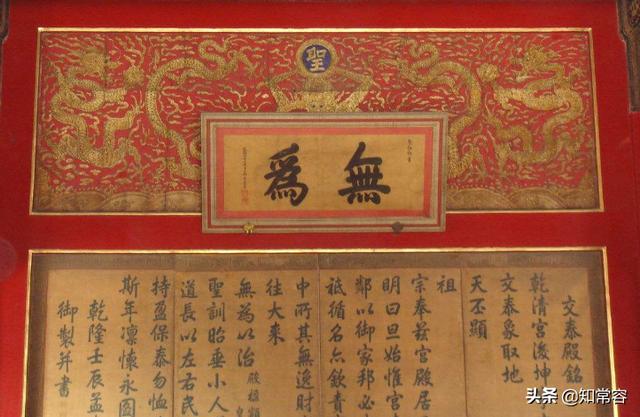 聖
無爲
交泰殿銘
乾清宮後坤
交泰象取地
天丕顯
祖
宗奉茲宮殿居
明曰旦始惟宮
以御家邦必
祗循名亦欽責
中所其無逸財
往大來
無為以治 殿楹額
聖訓昭垂小人
道長以左右民
持盈保泰勿恤
斯年凜懷永圖
乾隆壬辰孟
御製并書
头条 @知常容